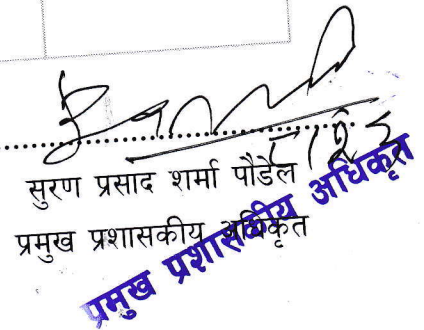 सुरण प्रसाद शर्मा पौडेल
प्रमुख प्रशासकीय अधिकृत
प्रमुख प्रशासकीय अधिकृत